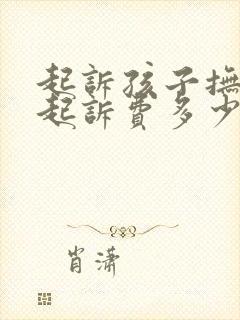 起訴孩子撫
起訴費多少
肖潇